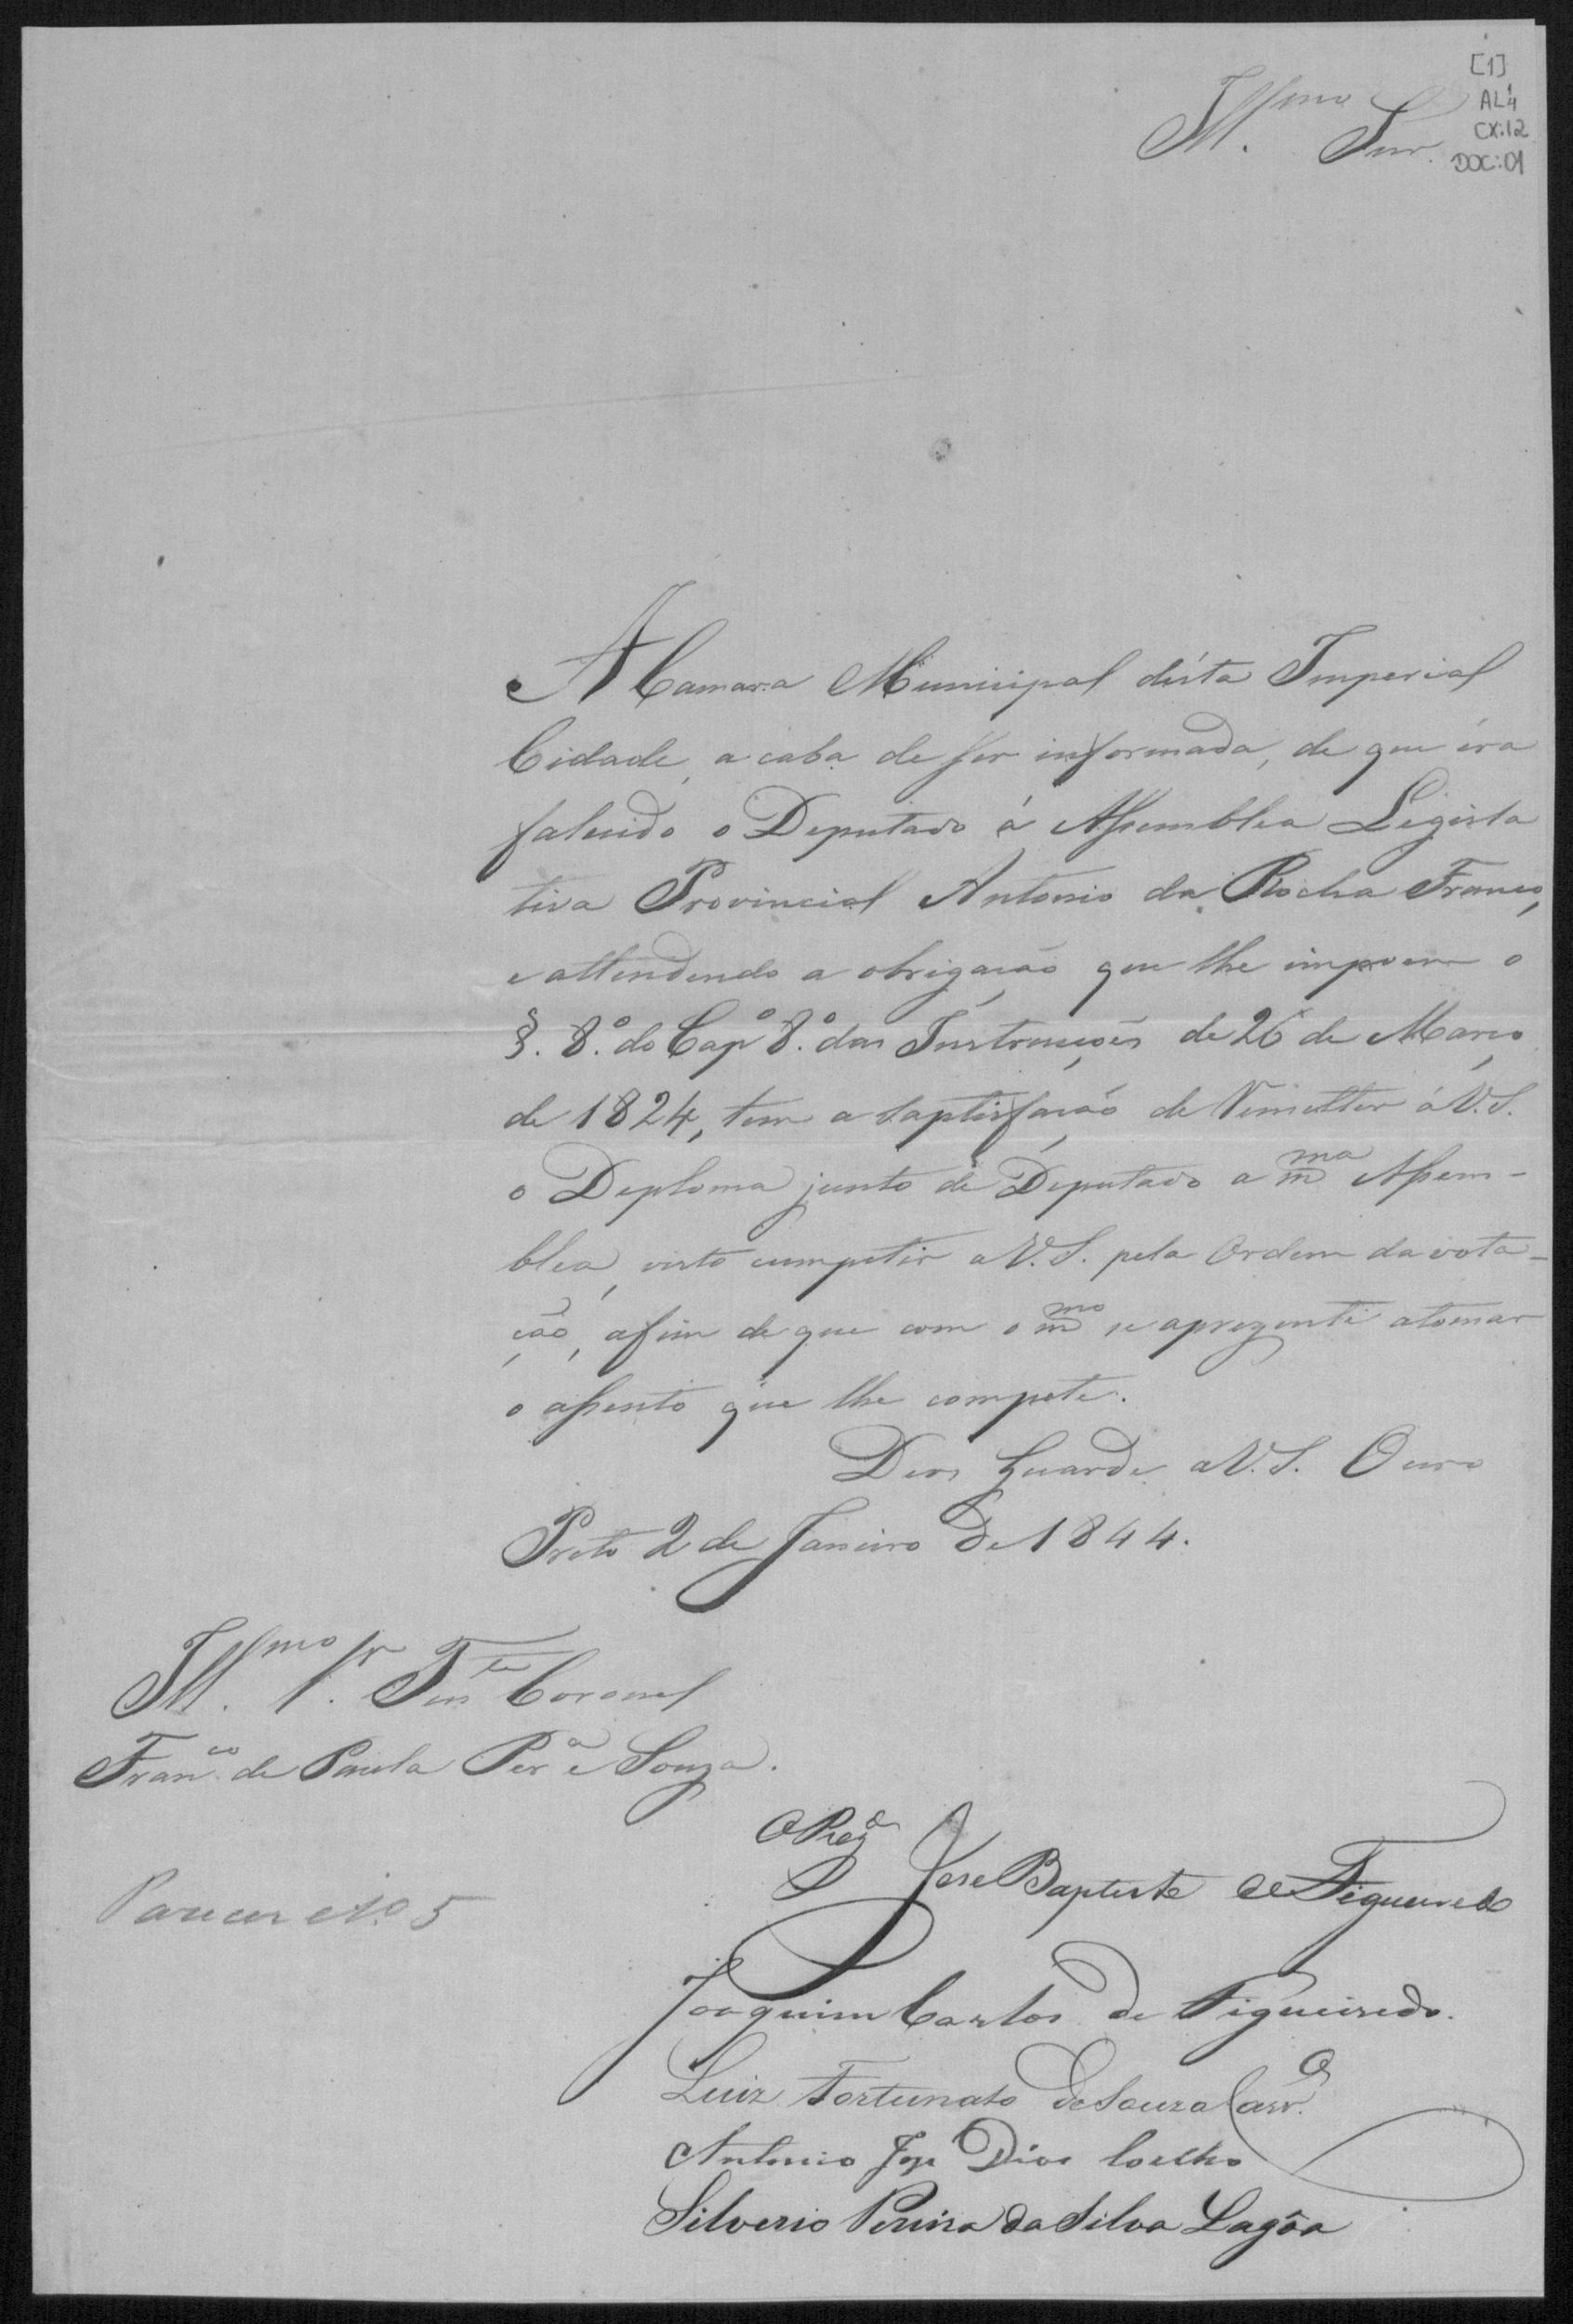 [1]
AL4
CX:12
DOC:01
Illmo Snr.
A Camara Municipal désta Imperial
Cidade, a caba de ser informada, de que éra
falecido o Deputado á Assemblea Legisla
tiva Provincial Antonio da Rocha Franco,
e attendendo a obrigação que lhe impoem o
§. 8.º do Capº 8.º das Instrucções de 26 de Março
de 1824, tem a saptisfação de Remetter á V.S.
o Deploma junto de Deputado a mma Assem-
blea, visto cumpetir a V.S. pela Ordem da vota-
ção, afim de que com o mmo se aprezente a tomar
o assento que lhe compete.
Deos Guarde a V.S. Ouro
Preto 2 de Janeiro de 1844.
Illmo Sr. Tente Coronel
Franco de Paula Pera e Souza.
O Prezde
Jose Baptista de Figueiredo
Parecer No 5
Joaquim Carlos de Figueiredo.
Luiz Fortunato de Souza Carvo
Antonio Joze Dias Coelho
Silverio Pereira da Silva Lagôa